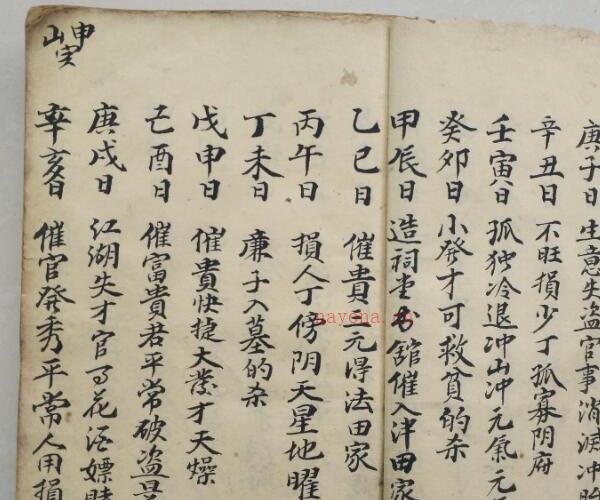 庚子日 生意失盗官事消涙冲
辛丑日 不旺損少丁孤寡阴府
壬寅日 孤独冷退冲山冲元氣元
癸卯日 小發才可救貧的杀
甲辰日 造祠堂公舘催入泮田家
乙巳日 催貴元得法田家
丙午日 損人丁傍阴天星地曜
丁未日 廉子入墓的杀
戊申日 催貴快捷大發才天燥
己酉日 催富貴君平常破盗
庚戍日 江湖失才官花酒嫖賭
辛亥日 催官發秀平常人用損
申山
nayona.cn